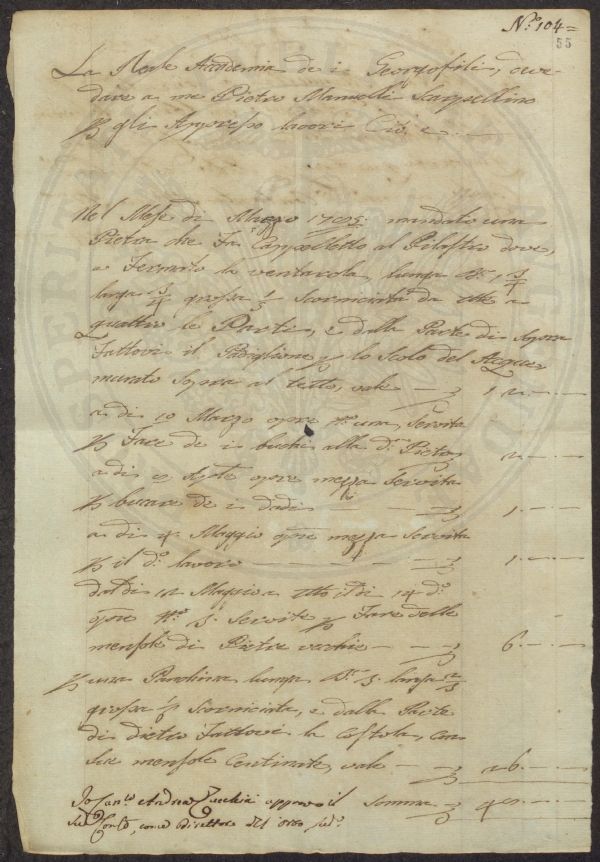 N.º 104=
55
La Reale Accademia de i Georgofili, deve
dare a me Pietro Manuelli Scarpellino
p gli Appresso lavori Cioè
Nel Mese di Marzo mandato una
Pietra che Fa Cappelletto al Pilastro dove,
a Fermato la ventarola, lunga B.ª 1
larga grossa Scorniciata da tutte a
quattro le Parti, e dalla Parte di Sopra
Fattovi il Padiglione p lo Scolo del Acque
murato Sopra al tetto, vale
a di 10 Marzo opre n.º una, Servita
p Fare de i buchi alla d.ª Pietra
a di Aple opre mezza Servita
p bucare de i dadi 1
a di 4 Maggio opre mezza Servita
p il d.º lavoro 1
dal di 12 Maggio a tutto il di 14 d.º
opre n.º 3 Servite p Fare delle
mensole di Pietre vecchie 6
p una Panchina lunga B.ª 3 larga
grossa Scorniciata, e dalla Parte
di dietro Fattovi la Costola, con
Sue mensole Centinate, vale 26
Somma
Io Andrea Zucchini approvo il
Conto, come Direttore del Orto